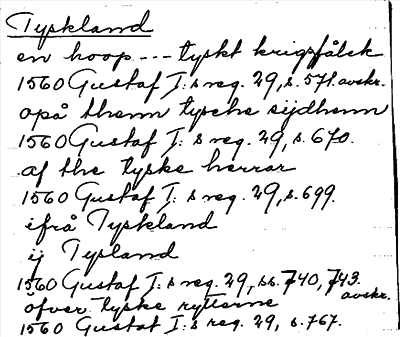 Tyskland
en hoop --- tyskt krigsfålck
1560 Gustaf I:s reg. 29, s. 571. avskr.
opå them tysche sijdhenn
1560 Gustaf I:s reg. 29, s. 670.
af the tyske herrar
1560 Gustaf I:s reg. 29, s. 699.
ifrå Tyskland
ij Tysland
1560 Gustaf I:s reg. 29, ss. 740, 743. avskr.
öfver tyske rytterne
1560 Gustaf I:s reg. 29, s. 767.